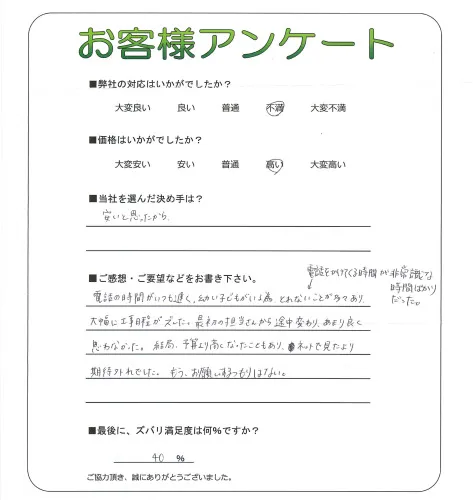 お客様アンケート
■弊社の対応はいかがでしたか？
大変良い　良い　普通　不満　大変不満
■価格はいかがでしたか？
大変安い　安い　普通　高い　大変高い
■当社を選んだ決め手は？
安いと思ったから。
■ご感想・ご要望などをお書き下さい。
電話をかけてくる時間が非常識な
時間ばかり
だった。
電話の時間がいつも遅く、幼い子どもがいる為、とれないことが多々あり、
大幅に工事日程がズレた。最初の担当さんから途中変わり、あまり良く
思わなかった。結局、予算より高くなったこともあり、ネットで見たより
期待外れでした。もう、お願いするつもりはない。
■最後に、ズバリ満足度は何%ですか？
40 %
ご協力頂き、誠にありがとうございました。